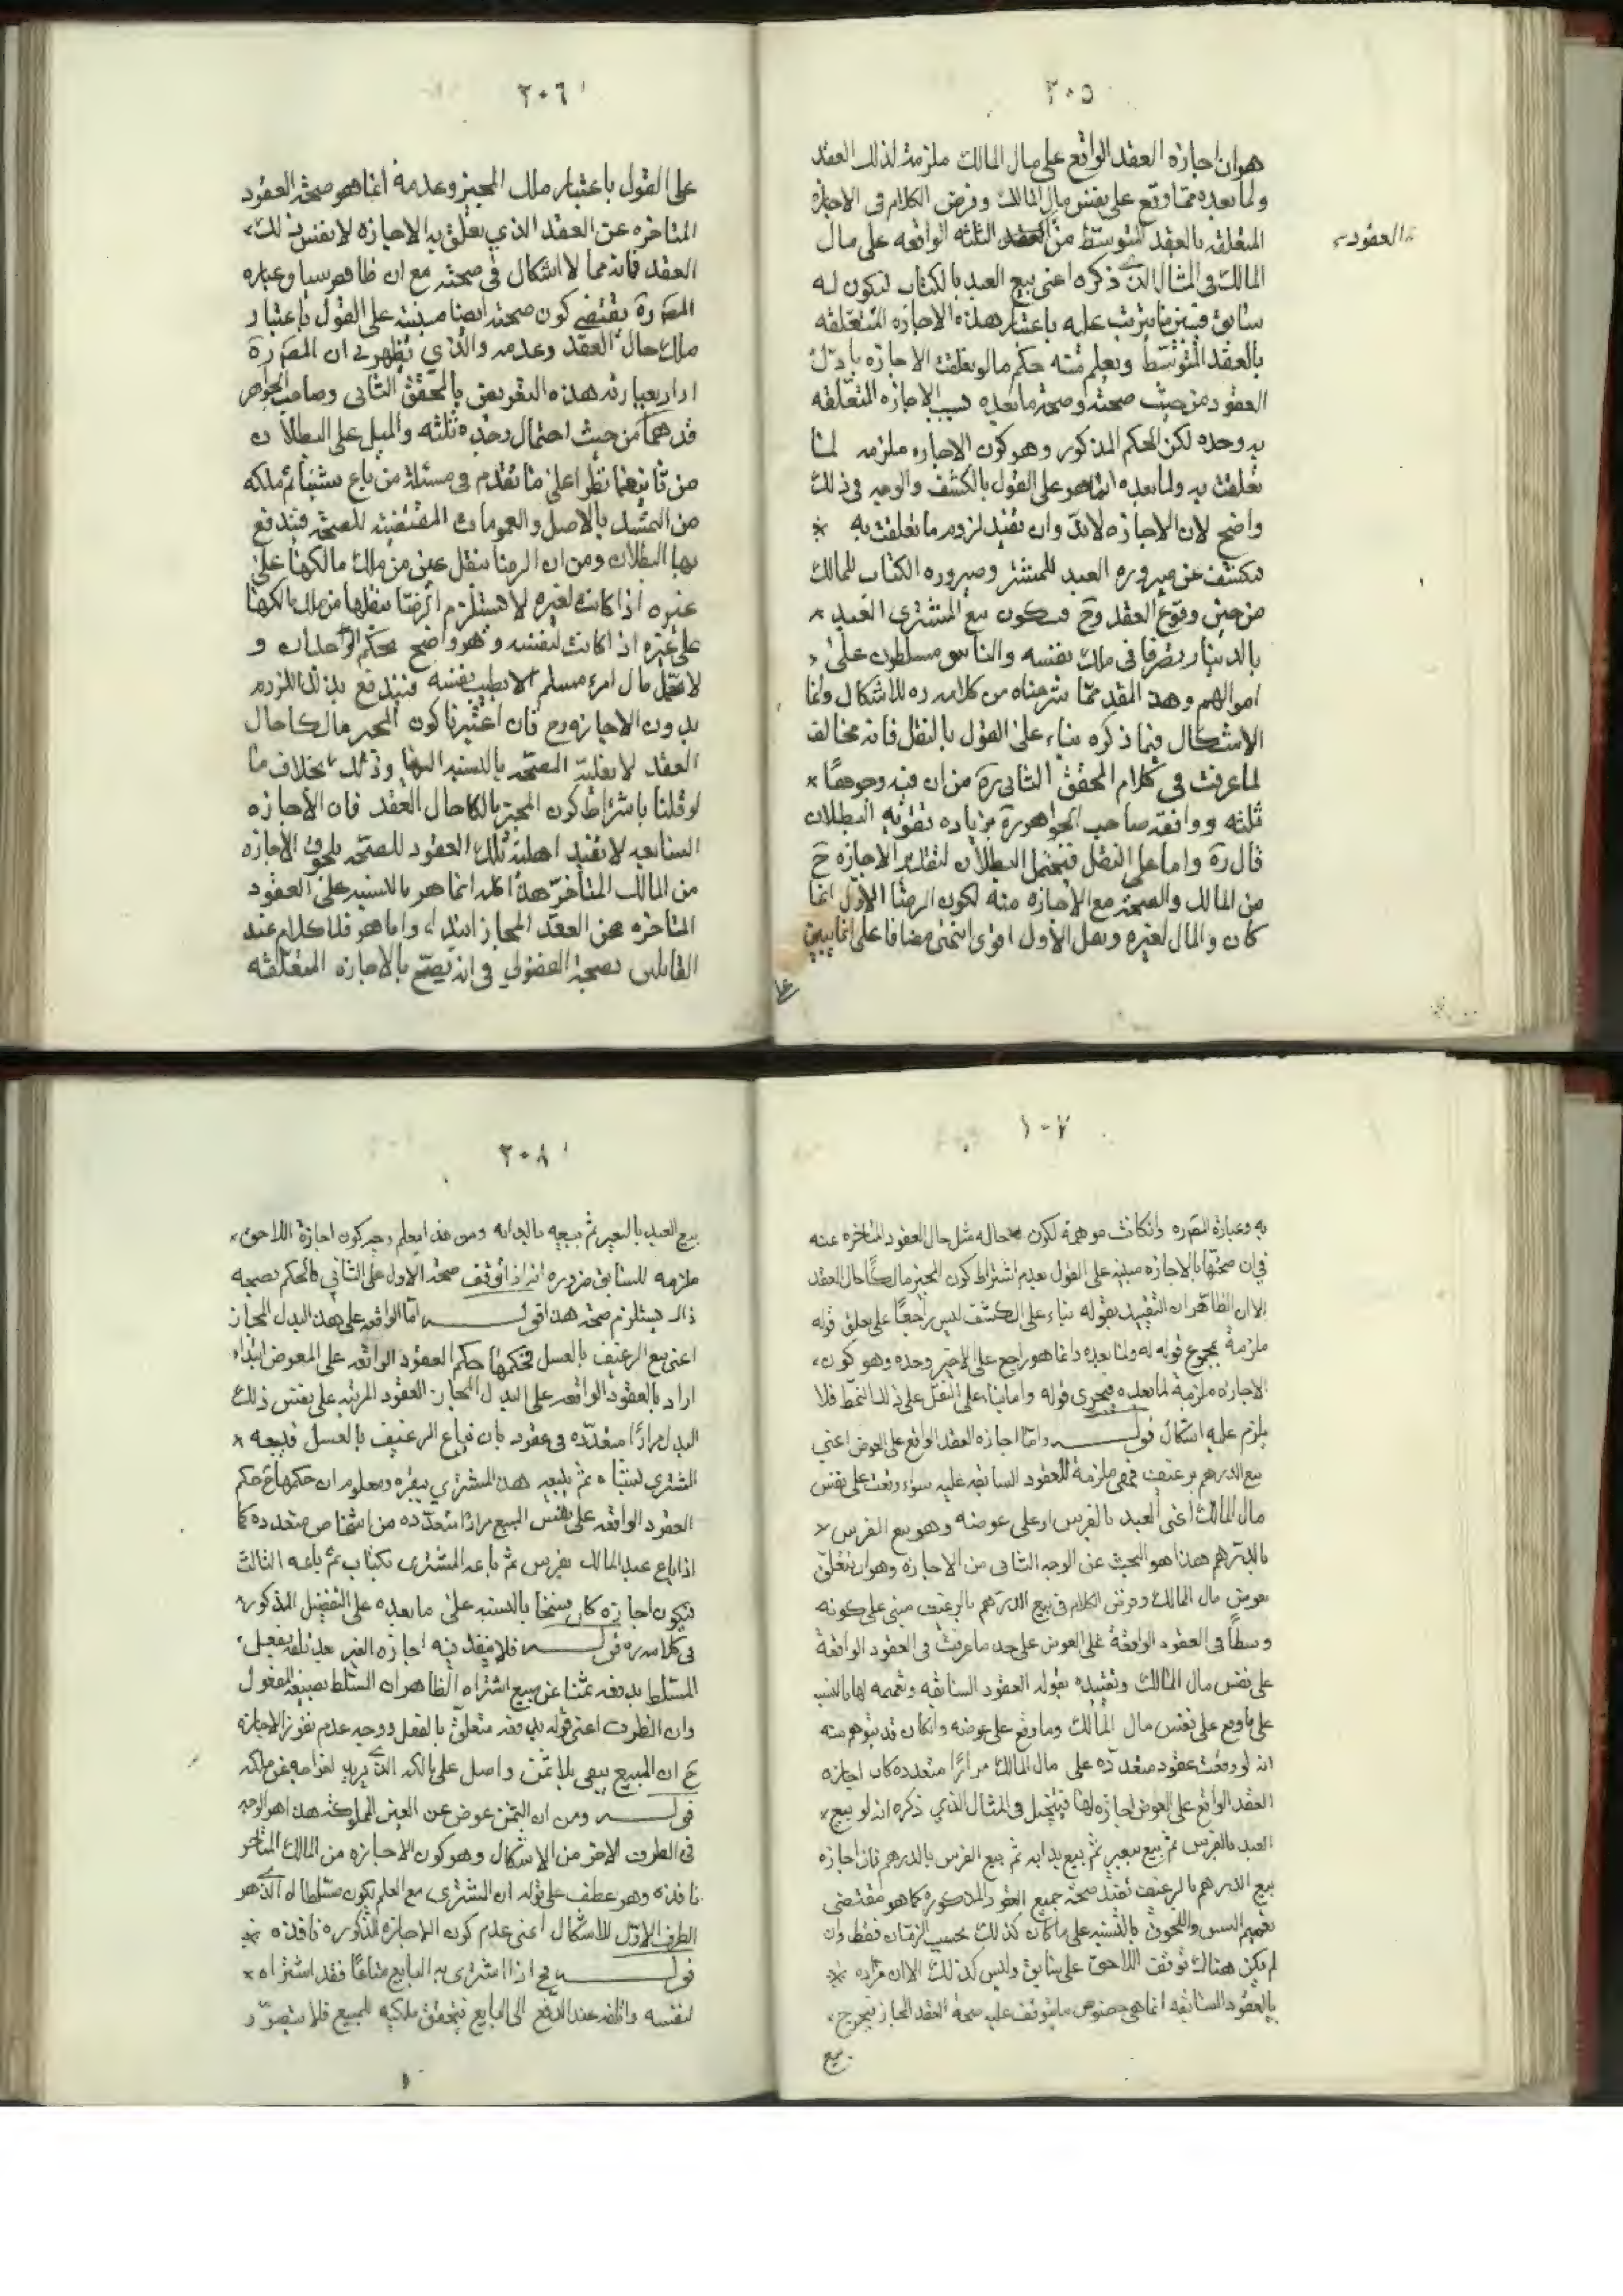 ٢٠٥
هو ان اجازة العقد الواقع على مال المالك ملزمة لذلك العقد
ولما بعده مما وقع على نفس مال المالك وفرض الكلام فى الاجازة
المتعلقه بالعقد المتوسّط من العقد الثلثه الواقعه على مال
العقود
المالك فى المثال الذى ذكره اعنى بيع العبد بالكتاب ليكون له
سابق فيتبين ما يترتب عليه باعتبار هذه الاجازه المتعلقه
بالعقد المتوسّط ويعلم منه حكم ما لو تعلقت الاجازه باوّل
العقود من حيث صحته وصحة ما بعده بسبب الاجازه المتعلقه
به وحده لكن الحكم المذكور وهو كون الاجازه ملزمه لما
تعلقت به ولما بعده انما هو على القول بالكشف والوجه فى ذلك
واضح لان الاجازه لابدّ وان تفيد لزوم ما تعلقت به
فتكشف عن صيروره العبد للمشترى وصيروره الكتاب للمالك
من حين وقوع العقد وح فيكون بيع المشترى العبد
بالدينار تصرفا فى ملك نفسه والناس مسلطون على
اموالهم وهذ المقد مما شرحناه من كلامه ره لا اشكال وانما
الاشكال فيما ذكره بناء على القول بالنقل فانه مخالف
لما عرفت فى كلام المحقق الثانى ره من ان فيه وجوها
ثلثه ووافقه صاحب الجواهر ره بزياده تقويه البطلان
قال ره واما على النقل فيحتمل البطلان لتقدير الاجازه ح
من المالك والصحة مع الاجازه منه لكون الرضا الاول انما
كان والمال لغيره ولعل الأول اقوى انتهى مضافا على انما يبين
على
٢٠٦
على القول باعتبار ملك المجيز وعدمه انما هو صحة العقود
المتاخره عن العقد الذى تعلق به الاجازه لا نفس ذلك
العقد فانه مما لا اشكال فى صحته مع ان ظاهر سياق عباره
المصره يقتضى كون صحته ايضا مبنيّه على القول باعتبار
ملك حال العقد وعدمه والذى يظهر لى ان المصره
اراد بعبارته هذه التعريض بالمحقق الثانى وصاحب الجواهر
قدهما من حيث احتمال وجوه ثلثه والميل على البطلان
من ثانيهما نظرا على ما تقدم فى مسئلة من باع شيئا ثم ملكه
من التمسّك بالاصل والعمومات المقتضيه للصحّه فيندفع
بها البطلان ومن ان الرضا بنقل عين من ملك مالكها على
غيره اذا كانت لغيره لا يستلزم الرضا بنقلها من ملك مالكها
على غيره اذ اكانت لنفسه وهو واضح بحكم الوجدان و
لا يحل مال امرء مسلم الا بطيب نفسه فيندفع بذلك اللزوم
بدون الاجازه وح فان اعتبرنا كون المجيز مالكا حال
العقد لا بغلبة الصحّه بالنسبه اليها وذلك بخلاف ما
لو قلنا باشتراط كون المجيز مالكا حال العقد فان الأجازه
السابقه لا تفيد اهليّة تلك العقود للصحّه بلحوق الأجازه
من المالك المتأخّر هذا كله انما هو بالنسبه على العقود
المتاخره عن العقد المجاز ابتداء واما هو فلا كلام عند
القائلين بصحة الفضولى فى انه يصحّ بالاجازه المتعلّقه
٢٠٧
به وعبارة المصره وانكانت موهمة لكون حاله مثل حال العقود المتاخره عنه
فى ان صحتها بالاجازه مبنيه على القول بعدم اشتراط كون المجيز مالكا حال العقد
الا ان الظاهر ان التقييد بقوله بناء على الكشف ليس راجعا على تعلق قوله
ملزمة بمجموع قوله له ولما بعده وانما هو راجع على الاخير وحده وهو كون
الاجازه ملزمة لما بعده فيجرى قوله واما بناء على النقل على ذلك النمط فلا
يلزم عليه اشكال قوله واما اجازه العقد الواقع على العوض اعنى
بيع الدرهم برغيف فهى ملزمة للعقود السابقه عليه سواء وقعت على نفس
مال المالك اعنى العبد بالفرس او على عوضه وهو بيع الفرس
بالدرهم هذا هو البحث عن الوجه الثانى من الاجازه وهو ان تتعلق
بعوض مال المالك وفرض الكلام فى بيع الدرهم بالرغيف مبنى على كونه
وسطًا فى العقود الواقعة على العوض على حد ما عرفت فى العقود الواقعة
على نفس مال المالك وتقييده بقوله العقود السابقه وتعميمه لها بالنسبه
على ما وقع على نفس مال المالك وما وقع على عوضه وانكان قد يتوهم منه
انه لو وقعت عقود متعدده على مال المالك مرارًا متعدده كان اجازه
العقد الواقع على العوض اجازه لها فيتخيل فى المثال الذى ذكره انه لو بيع
العبد بالفرس ثم بيع ببعير ثم بيع بدابه ثم بيع الفرس بالدرهم فان اجازه
بيع الدرهم بالرغيف تفيد صحة جميع العقود المذكوره كما هو مقتضى
تعميم السبق واللحوق بالنسبه على ما كان كذلك بحسب الزمان فقط وان
لم يكن هناك توقف اللاحق على سابق وليس كذلك الا ان مراده
بالعقود السابقه انما هى خصوص ما يتوقف عليه صحة العقد المجاز فيخرج
بيع
٢٠٨
بيع العبد بالبعير ثم بيعه بالدابه ومن هذا يعلم وجه كون اجازة اللاحق
ملزمه للسابق ضروره انه اذا توقف صحة الاول على الثانى فالحكم بصحة
ذاك يستلزم صحة هذا قوله اما الواقعه على هذا البدل المجاز
اعنى بيع الرغيف بالعسل فحكمها حكم العقود الواقعه على المعوض ابتداء
اراد بالعقود الواقعه على البدل المجاز العقود المرتبه على نفس ذلك
البدل مرارًا متعدّده فى عقود بان يباع الرغيف بالعسل فيبيعه
المشترى بشىاه ثم يبيعه هذا المشترى ببقره ومعلوم ان حكمها ح حكم
العقود الواقعه على نفس المبيع مرارًا متعدّده من اشخاص متعدده كما
اذا باع عبد المالك بفرس ثم باعه المشترى بكتاب ثم باعه الثالث
فيكون اجازه كان فسخا بالنسبه على ما بعده على التفصيل المذكور
فى كلامه ره قوله فلا ينفذ فيه اجازه الغير بعد تلفه بفعل
المسلط بدفعه ثمنا عن مبيع اشتراه الظاهر ان المسلط بصيغة المفعول
وان الظرف اعنى قوله بدفعه متعلق بالفعل ووجه عدم نفوذ الاجازه
ح ان المبيع يبقى بلا ثمن واصل على مالكه الذى يريد اخراجه عن ملكه
قوله ومن ان الثمن عوض عن العين المملوكة هذا هو الوجه
فى الطرف الاخر من الاشكال وهو كون الاجازه من المالك المتاخر
نافذه وهو عطف على قوله ان المشترى مع العلم يكون مسلطا له الذى هو
الطرف الاوّل للاشكال اعنى عدم كون الاجازه المذكوره نافذه
قوله فح اذا اشترى به البايع متاعًا فقد اشتراه
لنفسه واتلفه عند الدفع الى البايع فيتحقق ملكيه للمبيع فلا يتصوّر